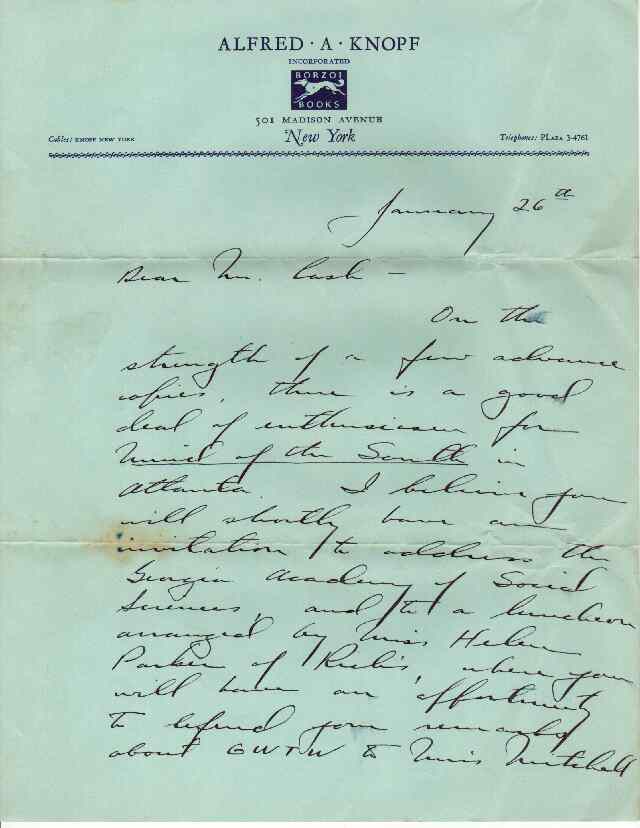 ALFRED · A · KNOPF
INCORPORATED
BORZOI
BOOKS
501 MADISON AVENUE
Cables: KNOPF NEW YORK
New York
Telephone: PLAZA 3-4761
January 26th
Dear Mr. Cash –
On the
strength of a few advance
copies, there is a good
deal of enthusiasm for
Mind of the South in
Atlanta. I believe you
will shortly have an
invitation to address the
Georgia Academy of Social
Sciences, and to a luncheon
arranged by Miss Helen
Parker of Rich's, where you
will have an opportunity
to defend your remarks
about GWTW to Miss Mitchell